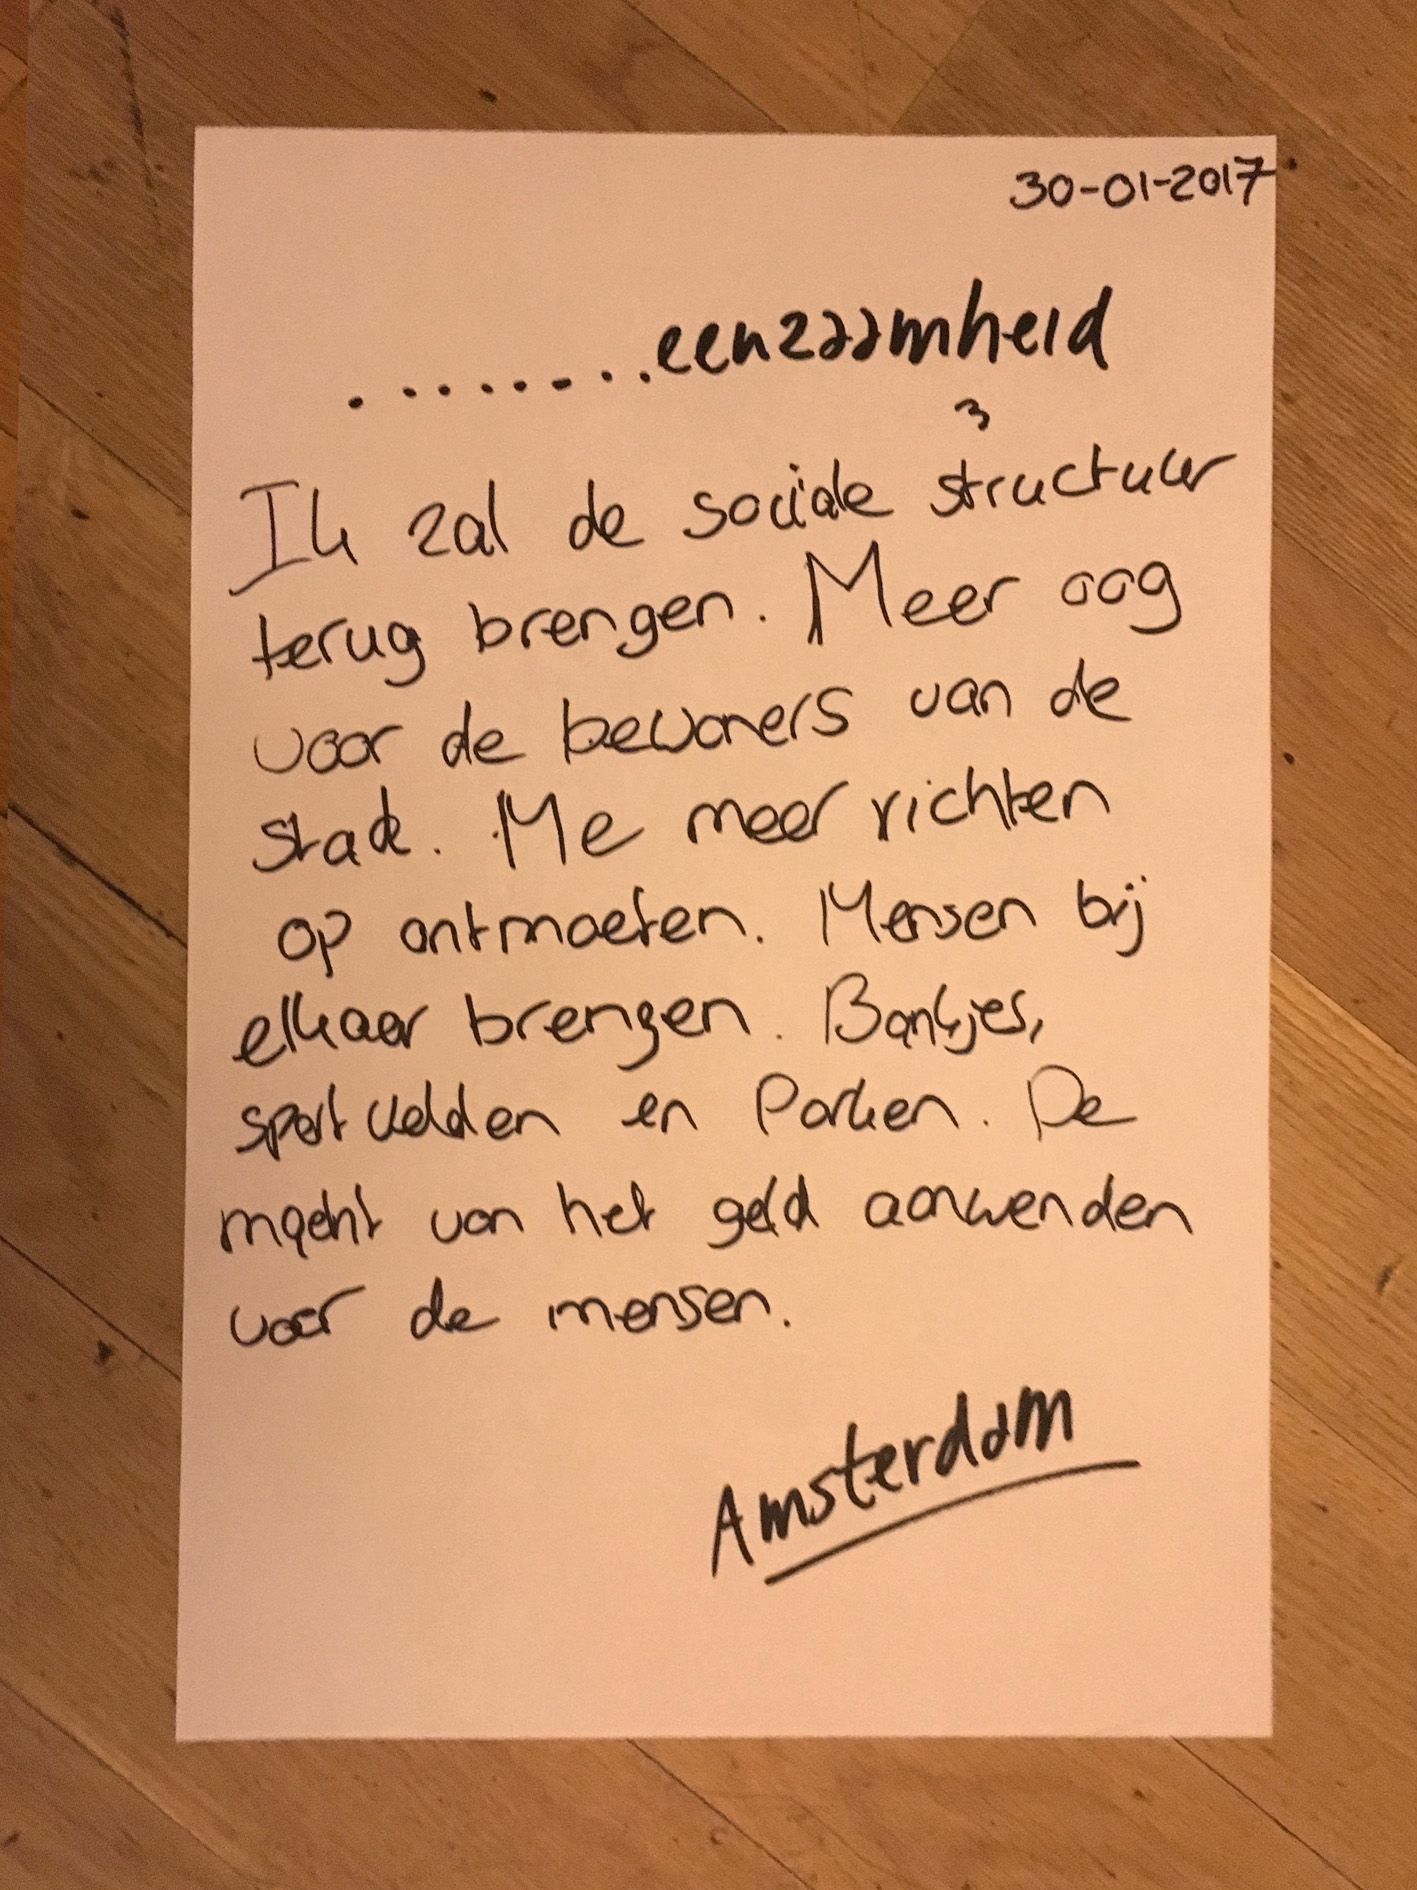 30-01-2017
.........eenzaamheid
3
Ik zal de sociale structuur
terug brengen. Meer oog
voor de bewoners van de
stad. Me meer richten
op ontmoeten. Mensen bij
elkaar brengen. Bankjes,
sport velden en Parken. De
macht van het geld aanwenden
voor de mensen.
Amsterdam